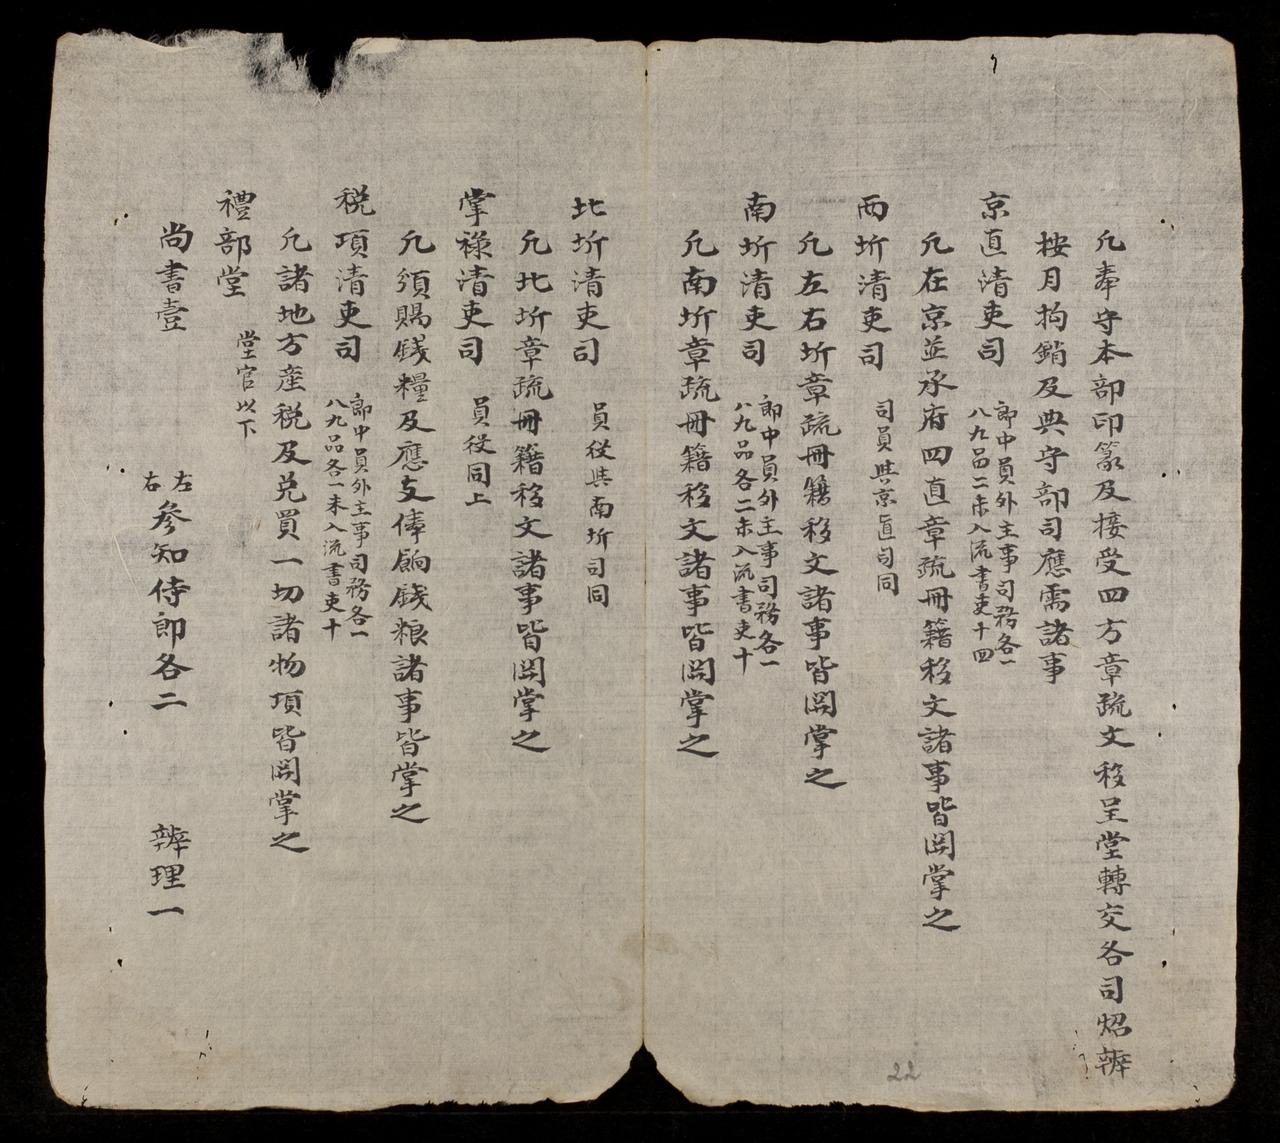 凢奉守本部印篆及接受四方章疏文移呈堂轉交各司炤辨
按月拘銷及典守部司應需諸事
京直清吏司 郎中員外主事司務各一
八九品二未入流書吏十四
凢在京並承府四直章疏冊籍移文諸事皆関掌之
西圻清吏司 司員與京直司同
凢左右圻章疏冊籍移文諸事皆関掌之
南圻清吏司 郎中員外主事司務各一
八九品各二未入流書吏十
凢南圻章疏冊籍移文諸事皆関掌之
北圻清吏司 員役與南圻司同
凢北圻章疏冊籍移文諸事皆関掌之
掌祿清吏司 員役同上
凢頒賜錢糧及應支俸餉錢粮諸事皆掌之
税項清吏司 郎中員外主事司務各一
八九品各一未入流書吏十
凢諸地方産税及兑買一切諸物項皆関掌之
禮部堂 堂官以下
尚書壹 左右參知侍郎各二 辨理一
22